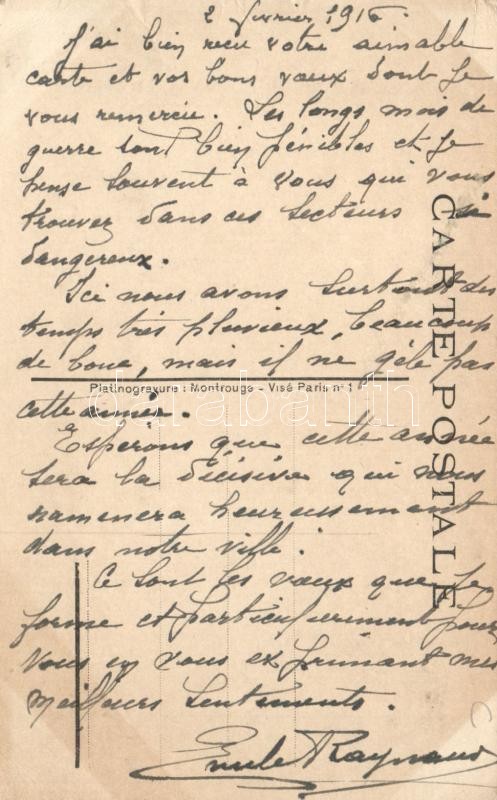 2 février 1916.
J'ai bien reçu votre aimable
carte et vos bons vœux dont je
vous remercie. Les longs mois de
guerre sont bien pénibles et je
pense souvent à vous qui vous
trouvez dans ces secteurs si
dangereux.
Ici nous avons surtout des
temps très pluvieux, beaucoup
de boue, mais il ne gèle pas
Platinogravure : Montrouge - Visé Paris nº 1
cette année.
Espérons que cette année
sera la décisive qui nous
ramenera heureusement
dans notre ville.
Ce sont les vœux que je
forme et particulièrement pour
vous en vous exprimant mes
meilleurs sentiments.
Emile Raynaud
CARTE POSTALE
darabanth